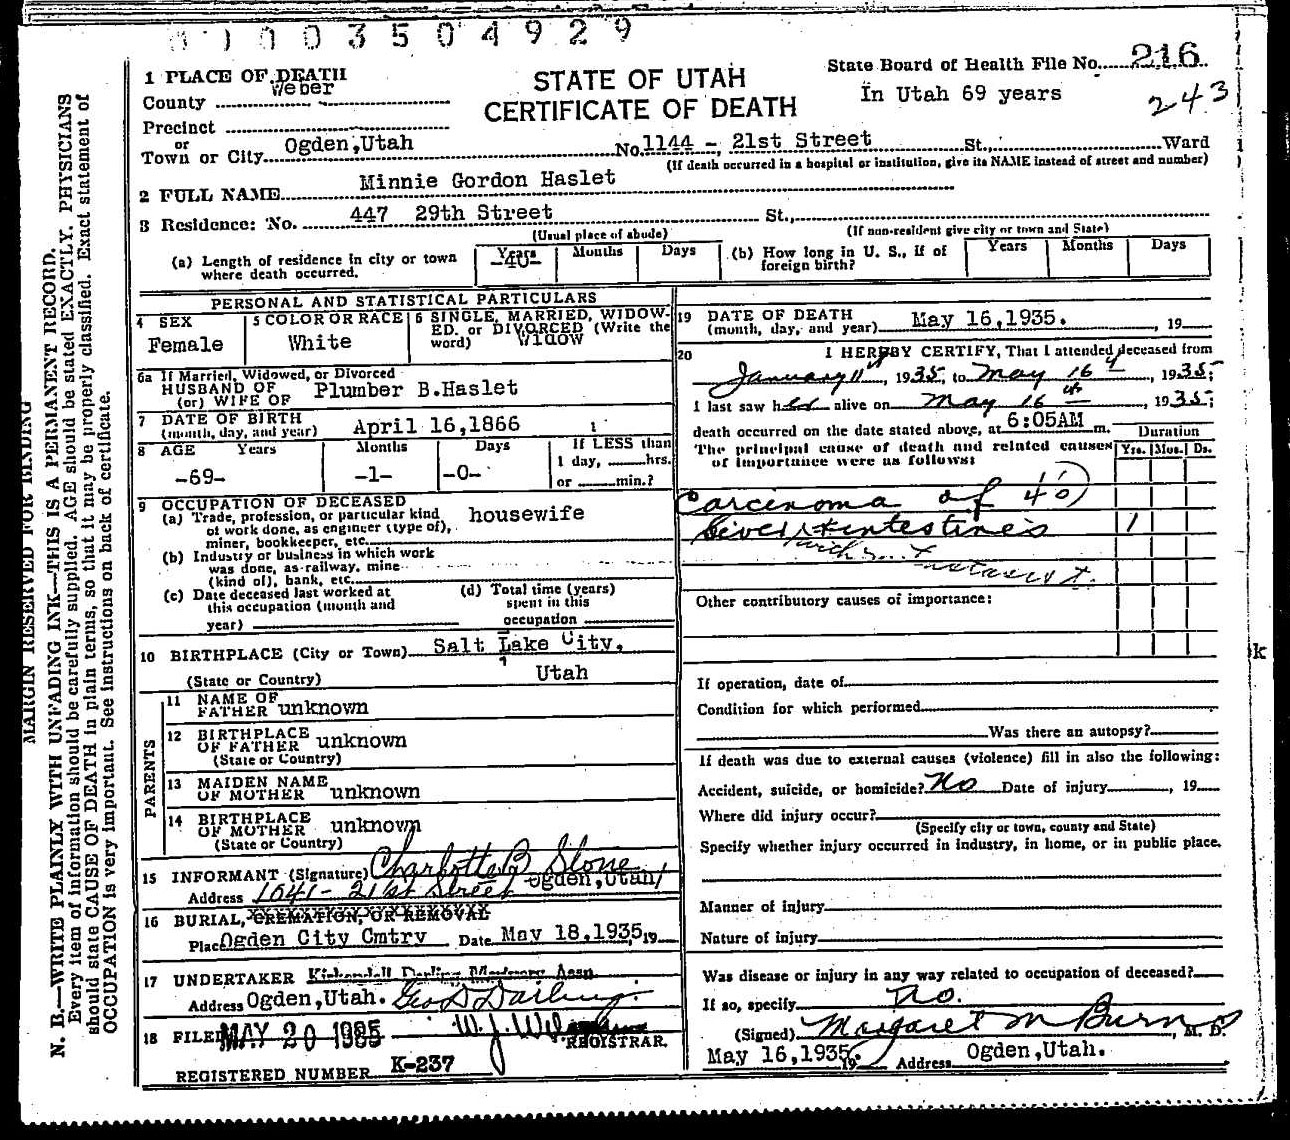 0 1 0 0 3 5 0 4 9 2 9
1 PLACE OF DEATH
County Weber
Precinct
or
Town or City Ogden,Utah
STATE OF UTAH
CERTIFICATE OF DEATH
State Board of Health File No. 216
In Utah 69 years
243
No. 1144 - 21st Street St., Ward
(If death occurred in a hospital or institution, give its NAME instead of street and number)
2 FULL NAME Minnie Gordon Haslet
3 Residence: No. 447 29th Street St.,
(Usual place of abode) (If non-resident give city or town and State)
(a) Length of residence in city or town where death occurred. Years -40- Months Days (b) How long in U. S., if of foreign birth? Years Months Days
PERSONAL AND STATISTICAL PARTICULARS
4 SEX Female
5 COLOR OR RACE White
6 SINGLE, MARRIED, WIDOWED, or DIVORCED (Write the word) Widow
6a If Married, Widowed, or Divorced
HUSBAND OF
(or) WIFE OF Plumber B.Haslet
7 DATE OF BIRTH
(month, day, and year) April 16,1866
8 AGE Years Months Days If LESS than
-69- -1- -0- 1 day, hrs.
or min.?
9 OCCUPATION OF DECEASED
(a) Trade, profession, or particular kind of work done, as engineer (type of), miner, bookkeeper, etc. housewife
(b) Industry or business in which work was done, as railway, mine (kind of), bank, etc.
(c) Date deceased last worked at this occupation (month and year)
(d) Total time (years) spent in this occupation
10 BIRTHPLACE (City or Town) Salt Lake City,
(State or Country) Utah
PARENTS
11 NAME OF FATHER unknown
12 BIRTHPLACE OF FATHER unknown
(State or Country)
13 MAIDEN NAME OF MOTHER unknown
14 BIRTHPLACE OF MOTHER unknown
(State or Country)
15 INFORMANT (Signature) Charlotte B Stone
Address 1041 - 21st Street Ogden,Utah
16 BURIAL, CREMATION, OR REMOVAL
Place Ogden City Cmtry Date May 18,1935, 19
17 UNDERTAKER Kirkendall Darling Mortuary Assn
Address Ogden,Utah. Geo D Darling
18 FILED MAY 20 1935 W. J.
REGISTRAR.
REGISTERED NUMBER K-237
19 DATE OF DEATH
(month, day, and year) May 16,1935. , 19
20 I HEREBY CERTIFY, That I attended deceased from
January 11, 1935, to May 16, 1935;
I last saw her alive on May 16th, 1935;
death occurred on the date stated above, at 6:05AM m.
The principal cause of death and related causes of importance were as follows:
Duration
Yrs. Mos. Ds.
Carcinoma of 40
Liver & intestines 1
Other contributory causes of importance:
If operation, date of
Condition for which performed
Was there an autopsy?
If death was due to external causes (violence) fill in also the following:
Accident, suicide, or homicide? No Date of injury , 19
Where did injury occur?
(Specify city or town, county and State)
Specify whether injury occurred in industry, in home, or in public place.
Manner of injury
Nature of injury
Was disease or injury in any way related to occupation of deceased?
If so, specify No.
(Signed) Margaret M Burns, M. D.
May 16,1935. 19 Address Ogden,Utah.
MARGIN RESERVED FOR BINDING
N. B.—WRITE PLAINLY WITH UNFADING INK—THIS IS A PERMANENT RECORD.
Every item of information should be carefully supplied. AGE should be stated EXACTLY. PHYSICIANS
should state CAUSE OF DEATH in plain terms, so that it may be properly classified. Exact statement of
OCCUPATION is very important. See instructions on back of certificate.
k